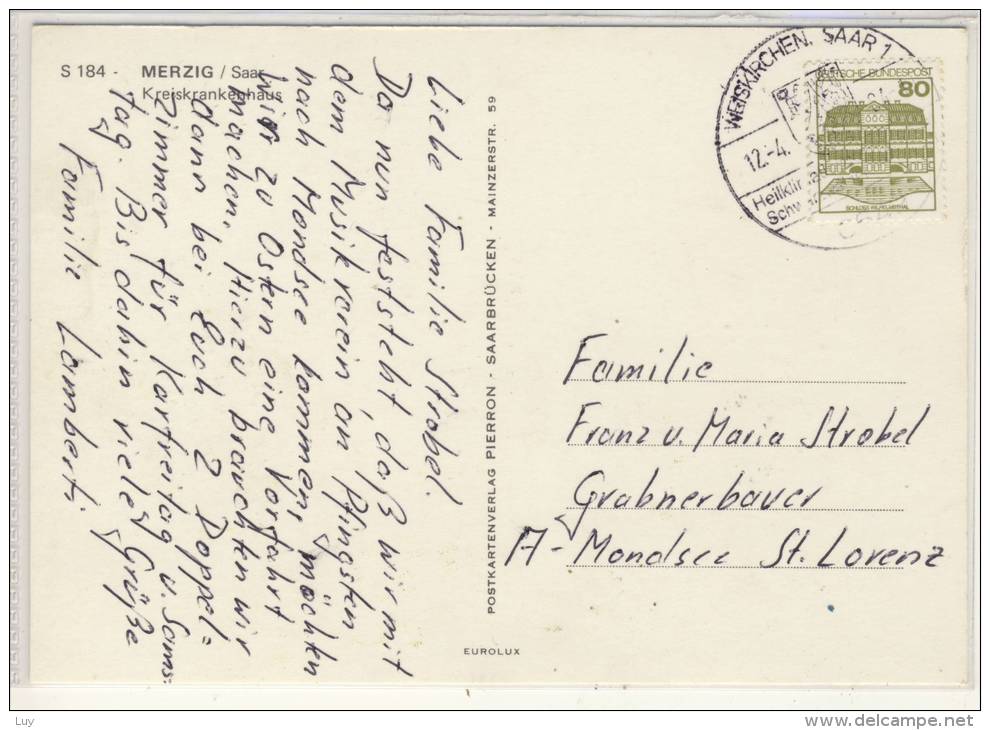 S 184 - MERZIG / Saar
Kreiskrankenhaus
Liebe Familie Strobel.
Da nun feststeht, daß wir mit
dem Musikverein an Pfingsten
nach Mondsee kommen, möchten
wir zu Ostern eine Vorfahrt
machen. Hierzu brauchten wir
dann bei Euch 2 Doppel=
zimmer für Karfreitag u. Sams=
tag. Bis dahin viele Grüße
Familie Lambert.
POSTKARTENVERLAG PIERRON - SAARBRÜCKEN - MAINZERSTR. 59
EUROLUX
WEISKIRCHEN, SAAR 1
12.-4.
DEUTSCHE BUNDESPOST
80
SCHLOSS WILHELMSTHAL
Familie
Franz u. Maria Strobel
Grabnerbauer
A-Mondsee St. Lorenz
Luy
www.delcampe.net